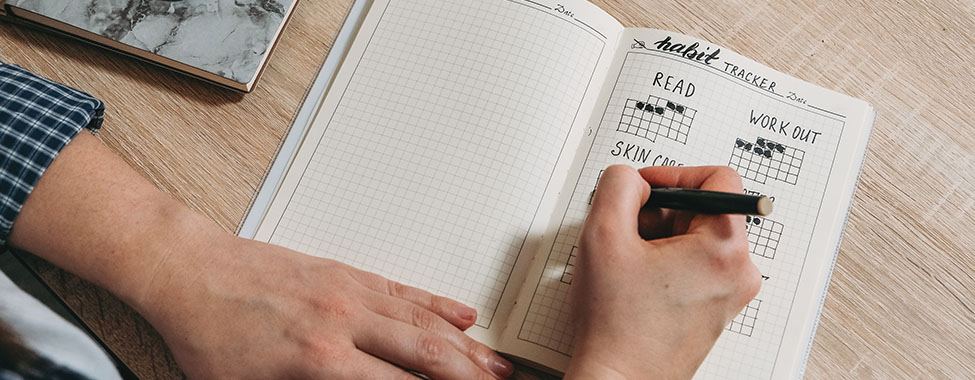 Date
habit TRACKER
Date
READ
WORK OUT
SKIN CARE